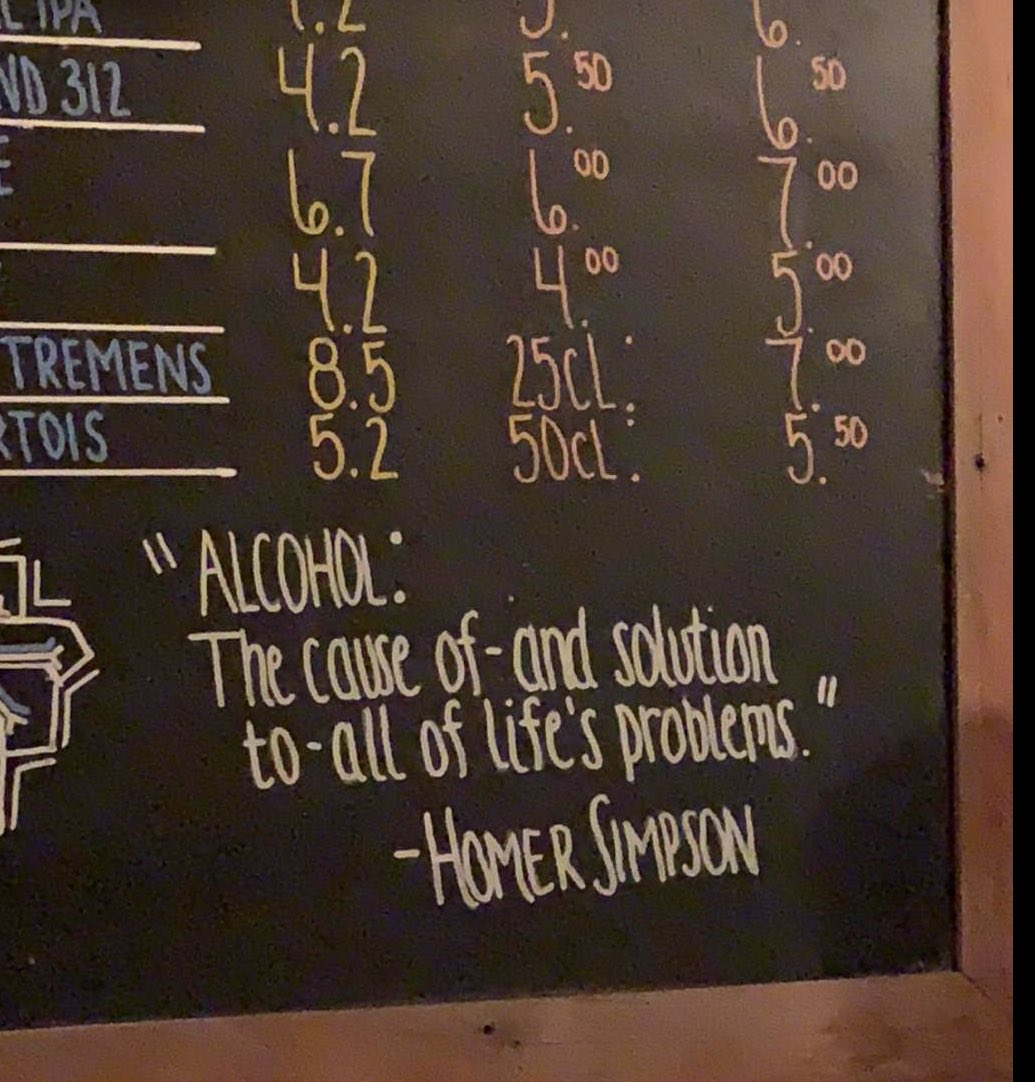 IPA
312 4.2 5.50 6.50
6.7 6.00 7.00
4.2 4.00 5.00
TREMENS 8.5 25cl: 7.00
RTOIS 5.2 50cl: 5.50
"ALCOHOL:
The cause of-and solution
to-all of life's problems."
-HOMER SIMPSON